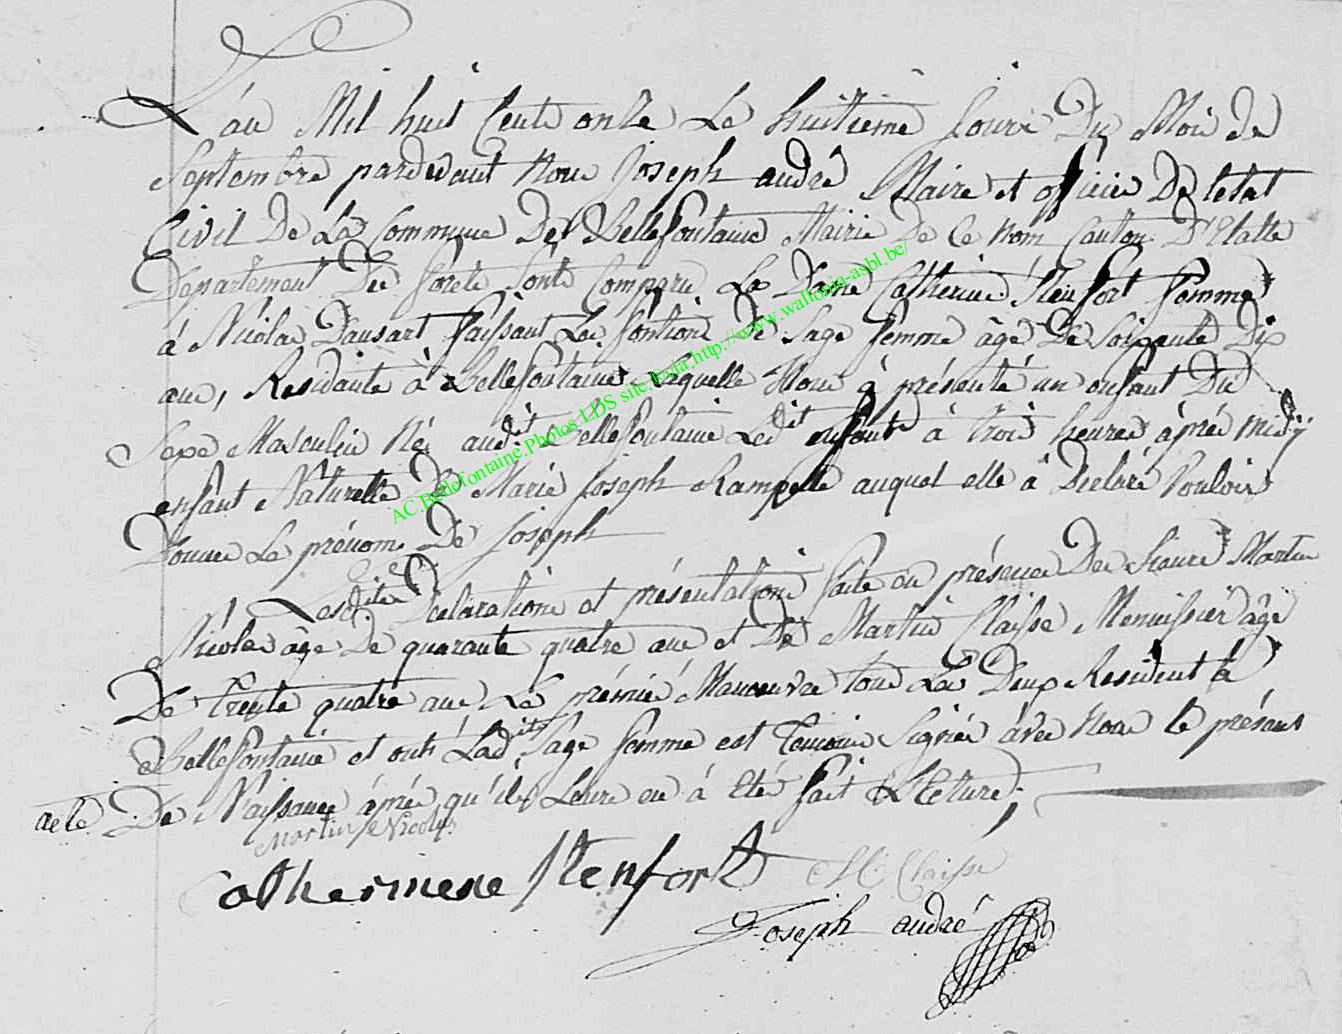 L'an Mil huit Cent onze Le huitieme Jour Du Mois de
Septembre pardevant Nous Joseph andré Maire et officier De letat
Civil De La Commune De Bellefontaine Mairie De Ce Nom Canton D'Etalle
Departement Des forets Sont Comparu La Dame Catherine Stenfort femme
à Nicolas Dausart faissant Les fontions De Sage femme âgé De Soixante Dix
ans, Residante à Bellefontaine, Laquelle Nous à présenté un enfant Du
Sexe Masculin Né audit Bellefontaine Ledit enfant à trois heures après midy
enfant Naturelle De Marie Joseph Rampelle auquel elle à Declaré Vouloir
Donner Le prénom De Joseph
Lesdites Declarations et présentations faite en présence De Martin
Nicolas âgé De quarante quatre ans et De Martin Claisse Menuissier âgé
De trente quatre ans Le premié Manoeuvre tous Les Deux Resident à
Bellefontaine et ont Ladite Sage femme est temoins Signés avec Nous le présent
acte De Naissance après qu'ils Leurs en à été fait Lecture;
Martin Nicolas
Catherinene Stenfort M Claisse
Joseph andré
AC.Bellefontaine.Photos LDS site.fr via.http://www.wallonia-asbl.be/